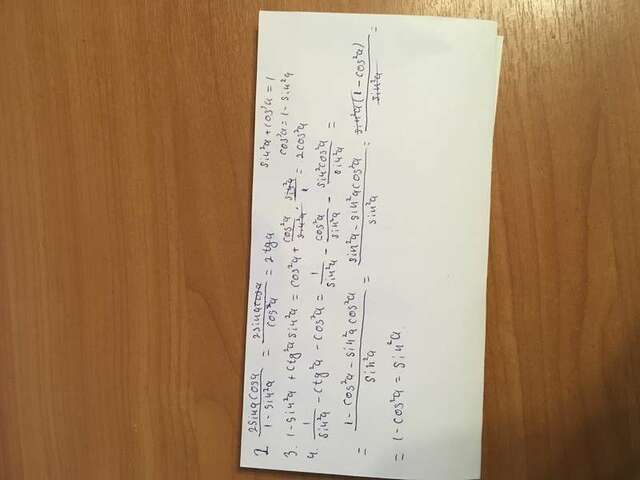 sin²a + cos²a = 1
cos²a = 1 - sin²a
2. 2sinacosa / 1 - sin²a = 2sinacosa / cos²a = 2tga
3. 1 - sin²a + ctg²a sin²a = cos²a + cos²a / sin²a · sin²a / 1 = 2cos²a
4. 1 / sin²a - ctg²a - cos²a = 1 / sin²a - cos²a / sin²a - sin²cos²a / sin²a =
= 1 - cos²a - sin²a cos²a / sin²a = sin²a - sin²a cos²a / sin²a = sin²a (1 - cos²a) / sin²a =
= 1 - cos²a = sin²a